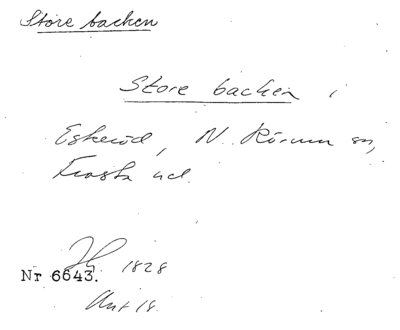 Store backen
Store backen i
Eskeröd, N. Rörum sn,
Frosta hd.
1828
Nr 6643.